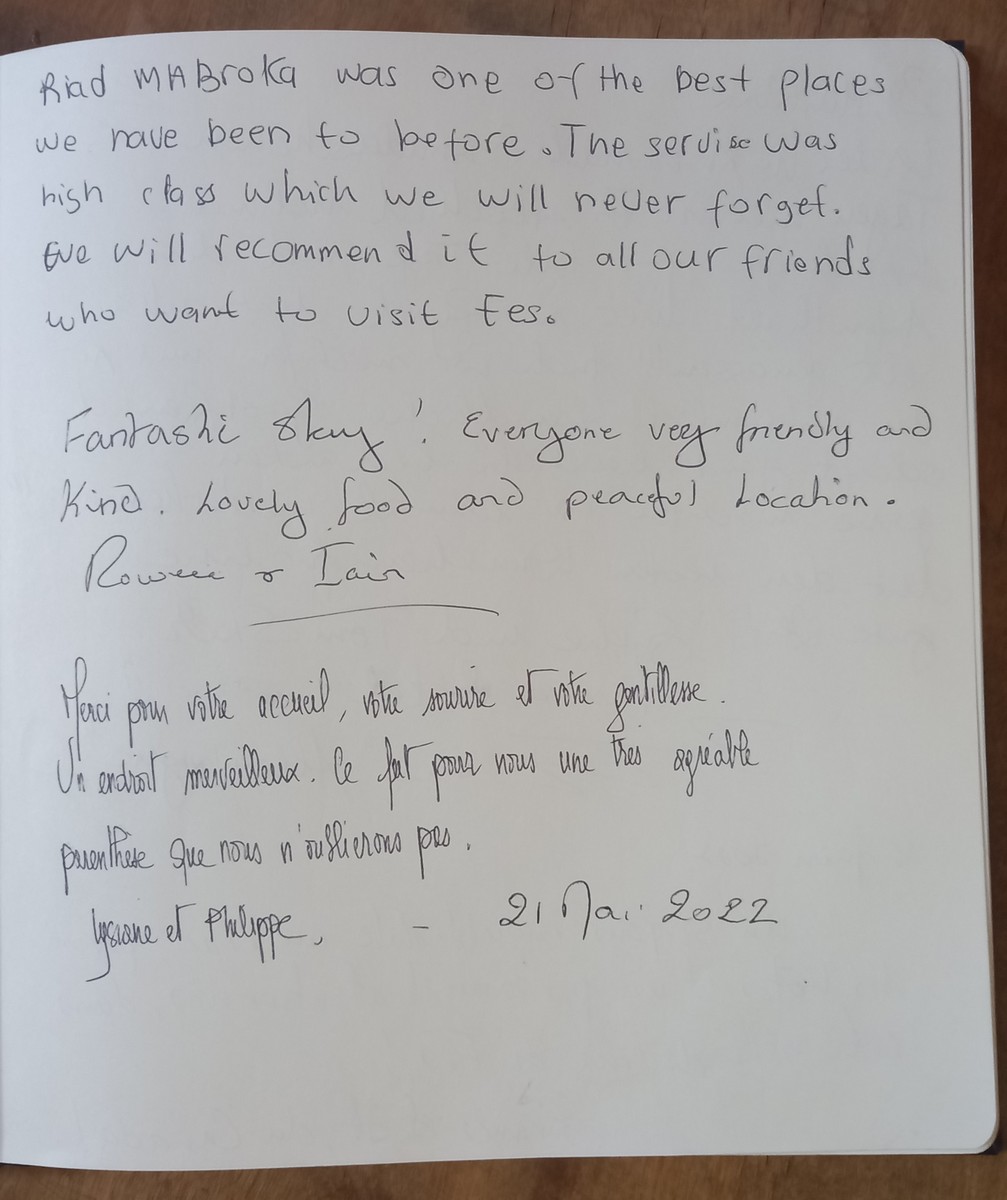 Riad MABroKa was one of the best places
we have been to before. The servise was
high class which we will never forget.
We will recommend it to all our friends
who want to visit Fes.
Fantastic Stay! Everyone very friendly and
Kind. Lovely food and peaceful Location.
& Iain
Merci pour votre accueil, votre sourire et votre gentillesse.
Un endroit merveilleux. Ce fut pour nous une très agréable
parenthèse que nous n'oublierons pas.
Lysiane et Philippe, - 21 Mai 2022